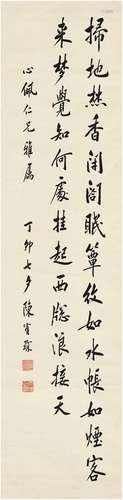 掃地焚香閉閣眠簟紋如水帳如煙客
來夢覺知何處挂起西窗浪接天
心佩仁兄雅屬
丁卯七夕陳寶琛